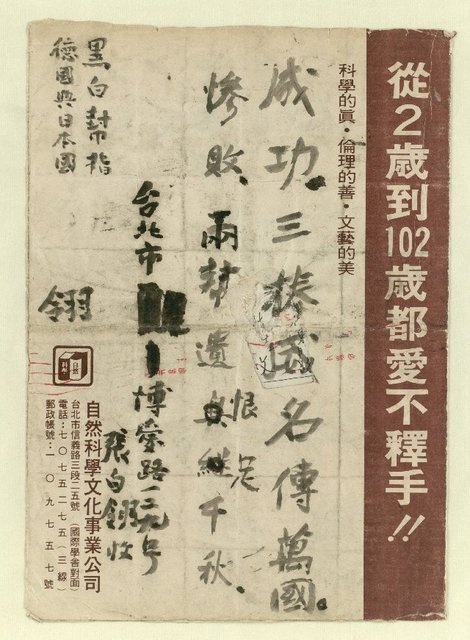 從2歲到102歲都愛不釋手!!
科學的眞・倫理的善・文藝的美
成功.三國名傳萬國.
慘敗.兩幇遺臭継千秋.
恨足
台北市博愛路一三九号
張白翎收
黑白幇指
德國與日本國
翎
自然科學文化事業公司
台北市信義路三段二五號(國際學舍對面)
電話:七〇七五二七五(三線)
郵政帳號:一〇九七五七號